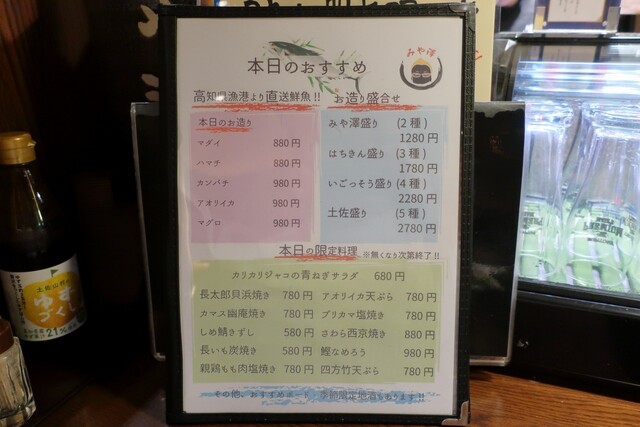 本日のおすすめ
みや澤
高知県漁港より直送鮮魚!!
お造り盛合せ
本日のお造り
マダイ 880円
ハマチ 880円
カンパチ 980円
アオリイカ 980円
マグロ 980円
みや澤盛り (2種)
1280円
はちきん盛り (3種)
1780円
いごっそう盛り (4種)
2280円
土佐盛り (5種)
2780円
本日の限定料理 ※無くなり次第終了!!
カリカリジャコの青ねぎサラダ 680円
長太郎貝浜焼き 780円
カマス幽庵焼き 780円
しめ鯖きずし 580円
長いも炭焼き 580円
親鶏もも肉塩焼き 780円
アオリイカ天ぷら 780円
ブリカマ塩焼き 780円
さわら西京焼き 880円
鰹なめろう 980円
四方竹天ぷら 780円
その他、おすすめボード 季節限定地酒もあります!!
ゆず
づくし
21%